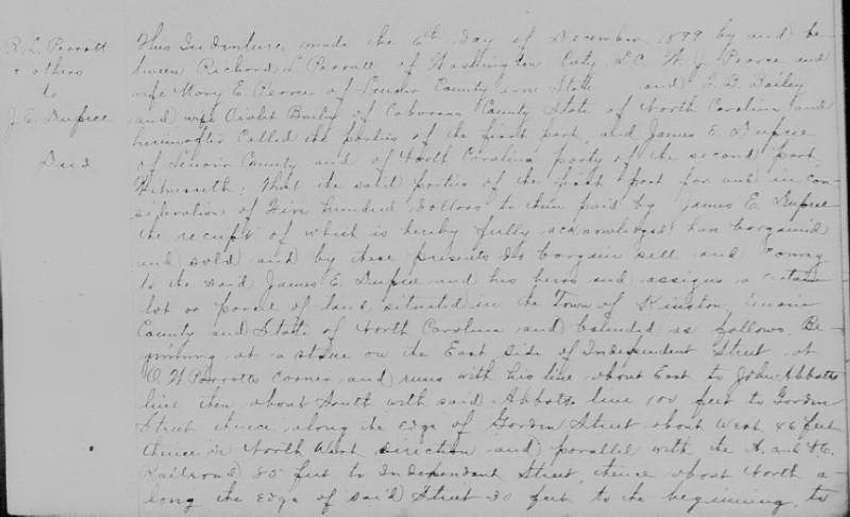 R. L. Parrott
& others
to
J. E. Dupree
Deed
This Indenture, made the 6th day of December 1899 by and be-
tween Richard L Parrott of Washington City D.C. W. J. Pearce and
wife Mary E. Pearce of Lenoir County same State and L. B. Bailey
and wife Bailey of Cabarrus County State of North Carolina and
hereinafter called the parties of the first part, and James E. Dupree
of Lenoir County and of North Carolina party of the second part,
Witnesseth; That the said parties of the first part for and in con-
sideration of Five hundred Dollars to them paid by James E. Dupree
the receipt of which is hereby fully acknowledged have bargained
and sold and by these presents do bargain sell and convey
to the said James E Dupree and his heirs and assigns a certain
lot or parcel of land situated in the Town of Kinston, Lenoir
County and State of North Carolina and bounded as follows Be-
ginning at a stone on the East Side of Independent Street at
O. H Parrotts corner and runs with his line about East to John Abbotts
line then about South with said Abbotts line 100 feet to Gordon
Street thence along the edge of Gordon Street about West 46 feet
thence in North West direction and parallel with the A. and N.C.
Railroad 85 feet to Independent Street, thence about North a-
long the edge of said Street 30 feet to the beginning, to